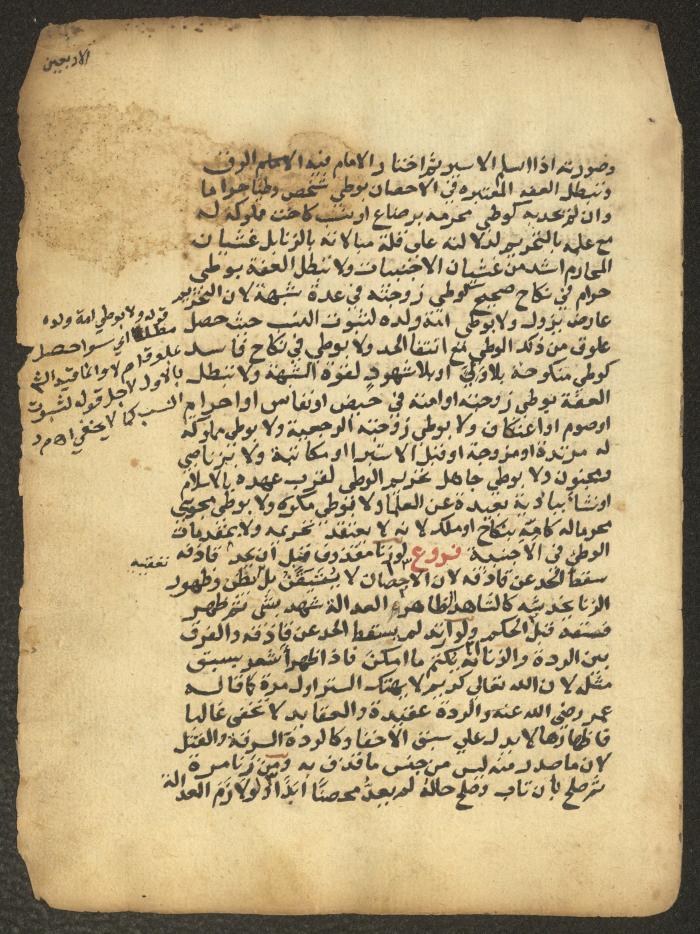 الاربعين
وصورته اذا اسلم الاسير ثم اختار الامام فيه الرق
وتبطل العفة المعتبره في الاحصان بوطي شخص وطئا حراما
وان لم يحد به كوطي محرمه برضاع او نسب كاخت مملوكة له
مع علمه بالتحريم لدلالته على قلة مبالاته بالزنا بل غشيان
المحارم اشد من غشيان الاجنبيات ولا تبطل العفة بوطي
حرام في نكاح صحيح كوطي زوجته في عدة شبهة لان التحريم
عارض يزول ولا بوطي امة ولده لثبوت النسب حيث حصل
علوق من ذلك الوطي مع انتفا الحد ولا بوطي في نكاح فاسد
كوطي منكوحة بلا ولي او بلا شهود لقوة الشبهة ولا تبطل
العفة بوطي زوجته او امته في حيض او نفاس او احرام
او صوم او اعتكاف ولا بوطي زوجته الرجعية ولا بوطي مملوكة
له مرتدة او مزوجة او قبل الاستبرا او مكاتبة ولا بزنا صبي
ومجنون ولا بوطي جاهل تحريم الوطي لقرب عهده بالاسلام
او نشا ببادية بعيدة عن العلما ولا بوطي مكره ولا بوطي مجوسي
محرما له كامه بنكاح او ملك لانه لا يعتقد تحريمه ولا بمقدمات
الوطي في الاجنبية فروع لو زنا مقذوف قبل ان يحد قاذفه
سقط الحد عن قاذفه لان الاحصان لا يستيقن بل يظن وظهور
الزنا يخدشه كالشاهد ظاهره العدالة شهد بشي ثم ظهر
فسقه قبل الحكم ولو ارتد لم يسقط الحد عن قاذفه والفرق
بين الردة والزنا انه يكتم ما امكن فاذا ظهر اشعر بسبق
مثله لان الله تعالى كريم لا يهتك الستر اول مرة كما قاله
عمر رضي الله عنه والردة عقيدة والعقايد لا تخفى غالبا
فاظهارها لا يدل على سبق الاخفا وكالردة السرقة والقتل
لان ما صدر منه ليس من جنس ما قذف به ومن زنا مرة
ثم صلح بان تاب وصلح حاله لم يعد محصنا ابدا ولو لازم العدالة
قوله ولا بوطي امة ولده
مطلقا اي سوا حصل
علوق ام لا وانما قيد الش
بالاول لاجل قوله لثبوت
النسب كما لا يخفي اه م د